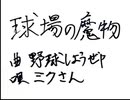 球場の魔物
曲 野球しようぜP
唄 ミクさん